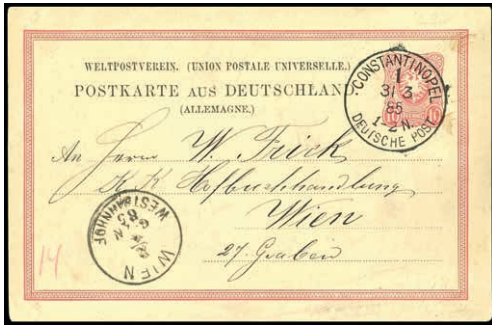 WELTPOSTVEREIN. (UNION POSTALE UNIVERSELLE.)
POSTKARTE AUS DEUTSCHLAND
(ALLEMAGNE.)
CONSTANTINOPEL
1
31 3
85
1-2 N.
DEUTSCHE POST
An Herrn W. Frick
K. K. Hofbuchhandlung
Wien
27. Graben
WIEN
WESTBAHNHOF
85
14